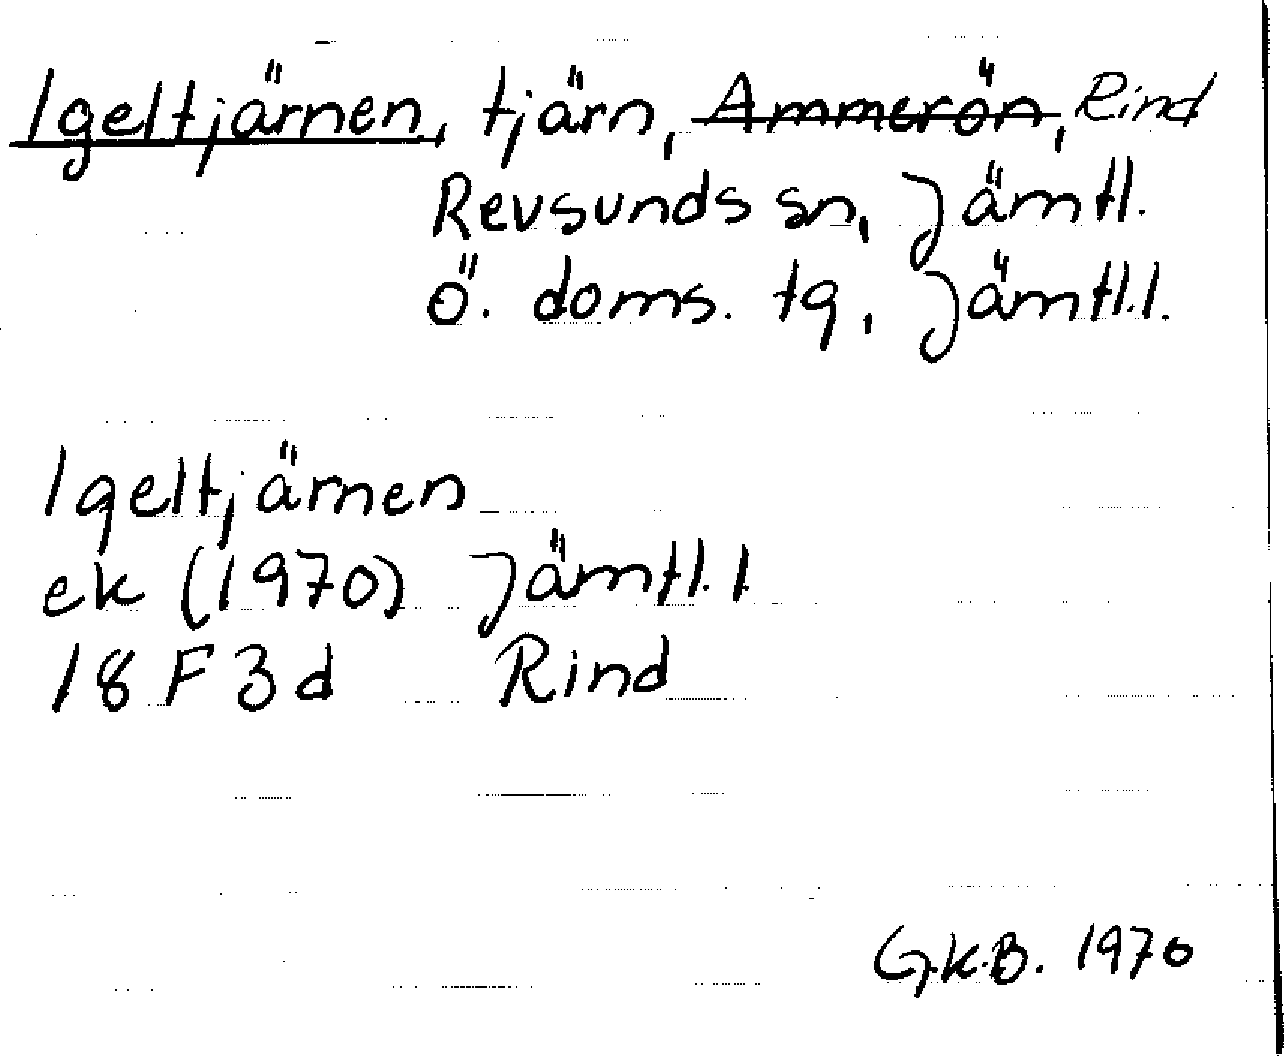 Igeltjärnen, tjärn, Ammerön, Rind
Revsunds sn, Jämtl.
Ö. doms. tg, Jämtl.l.
Igeltjärnen
ek (1970) Jämtl. l
18 F 3 d Rind
G.K.B. 1970